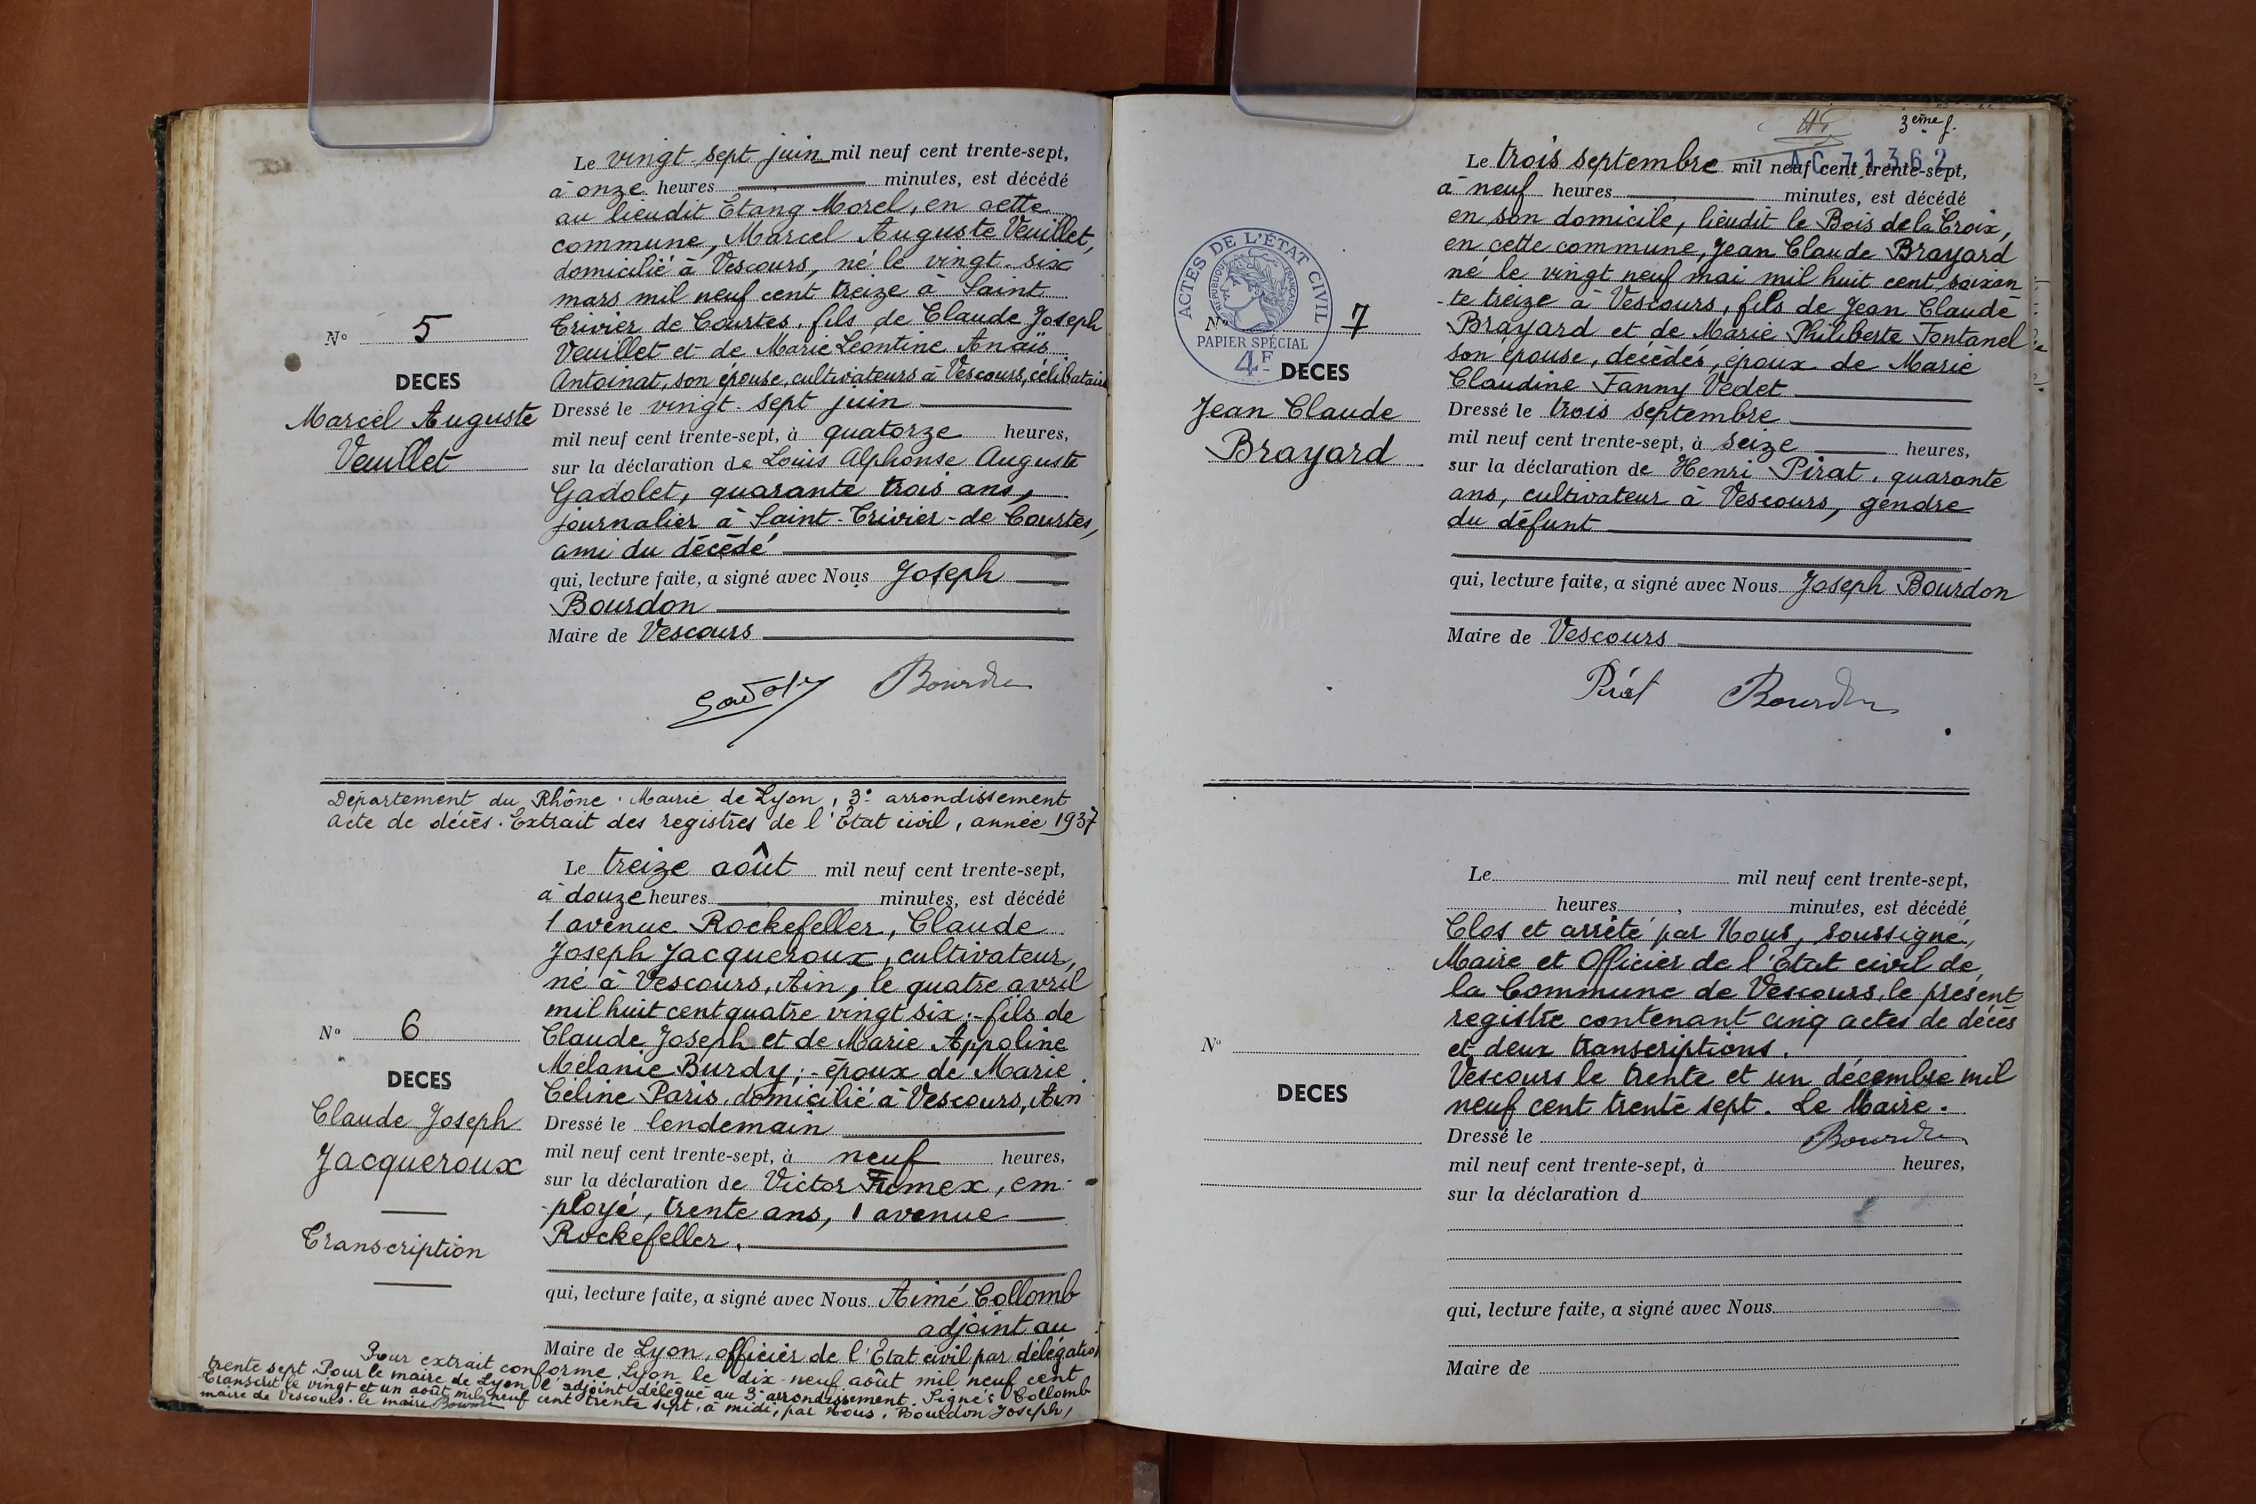 Le vingt sept juin mil neuf cent trente-sept,
à onze heures minutes, est décédé
au lieudit Etang Morel, en cette
commune, Marcel Auguste Veuillet,
domicilié à Vescours, né le vingt-six
mars mil neuf cent treize à Saint
Trivier de Courtes, fils de Claude Joseph
Veuillet et de Marie Léontine Anaïs
Antoinat, son épouse, cultivateurs à Vescours, célibataire
N° 5
DECES
Marcel Auguste
Veuillet
Dressé le vingt-sept juin
mil neuf cent trente-sept, à quatorze heures,
sur la déclaration de Louis Alphonse Auguste
Gadolet, quarante trois ans,
journalier à Saint-Trivier-de Courtes,
ami du décédé
qui, lecture faite, a signé avec Nous Joseph
Bourdon
Maire de Vescours
Bourdon
Département du Rhône. Mairie de Lyon, 3e arrondissement
Acte de décès. Extrait des registres de l'Etat civil, année 1937
Le treize août mil neuf cent trente-sept,
à douze heures minutes, est décédé
1 avenue Rockefeller, Claude
Joseph Jacqueroux, cultivateur,
né à Vescours, Ain, le quatre avril
mil huit cent quatre vingt six;- fils de
Claude Joseph et de Marie Appoline
Mélanie Burdy;- époux de Marie
Céline Paris, domicilié à Vescours, Ain
N° 6
DECES
Claude Joseph
Jacqueroux
Transcription
Dressé le lendemain
mil neuf cent trente-sept, à neuf heures,
sur la déclaration de Victor Fumex, em-
ployé, trente ans, 1 avenue
Rockefeller.
qui, lecture faite, a signé avec Nous Aimé Collomb
adjoint au
Maire de Lyon, officier de l'Etat civil par délégation
Pour extrait conforme, Lyon le dix-neuf août mil neuf cent
trente sept. Pour le maire de Lyon l'adjoint délégué au 3e arrondissement. Signé: Collomb
Transcrit le vingt et un août mil neuf cent trente sept, à midi, par Nous, Bourdon Joseph,
maire de Vescours. le maire Bourdon
3ème f.
AC 71362
Le trois septembre mil neuf cent trente-sept,
à neuf heures minutes, est décédé
en son domicile, lieudit le Bois de la Croix,
en cette commune, Jean Claude Brayard
né le vingt neuf mai mil huit cent soixan
-te treize à Vescours, fils de Jean Claude
Brayard et de Marie Philiberte Fontanel
son épouse, décédés, époux de Marie
Claudine Fanny Vedet
ACTES DE L'ÉTAT CIVIL
RÉPUBLIQUE FRANÇAISE
PAPIER SPÉCIAL
4F
N° 7
DECES
Jean Claude
Brayard
Dressé le trois septembre
mil neuf cent trente-sept, à seize heures,
sur la déclaration de Henri Pirat, quarante
ans, cultivateur à Vescours, gendre
du défunt
qui, lecture faite, a signé avec Nous Joseph Bourdon
Maire de Vescours
Pirat Bourdon
Le mil neuf cent trente-sept,
heures, minutes, est décédé
Clos et arrêté par Nous, soussigné,
Maire et Officier de l'Etat civil de
la Commune de Vescours, le présent
registre contenant cinq actes de décès
et deux transcriptions.
Vescours le trente et un décembre mil
neuf cent trente sept. Le Maire.
N°
DECES
Dressé le Bourdon
mil neuf cent trente-sept, à heures,
sur la déclaration d
qui, lecture faite, a signé avec Nous
Maire de